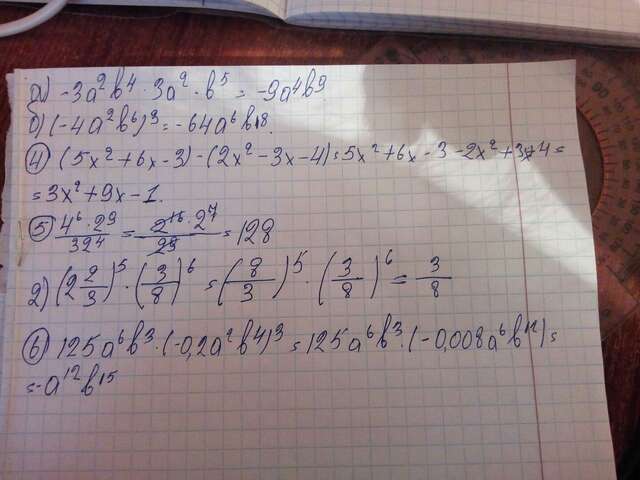 а) -3a²b⁴ · 3a² · b⁵ = -9a⁴b⁹
б) (-4a²b⁶)³ = -64a⁶b¹⁸.
④ (5x²+6x-3)-(2x²-3x-4)=5x²+6x-3-2x²+3x+4=
=3x²+9x-1.
⑤ 4⁶·2⁹/32⁴ = 2¹⁵·2⁷/2⁸ = 128
2) (2 2/3)⁵ · (3/8)⁶ = (8/3)⁵ · (3/8)⁶ = 3/8
⑥ 125a⁶b³·(-0,2a²b⁴)³ = 125a⁶b³·(-0,008a⁶b¹²)=
=-a¹²b¹⁵